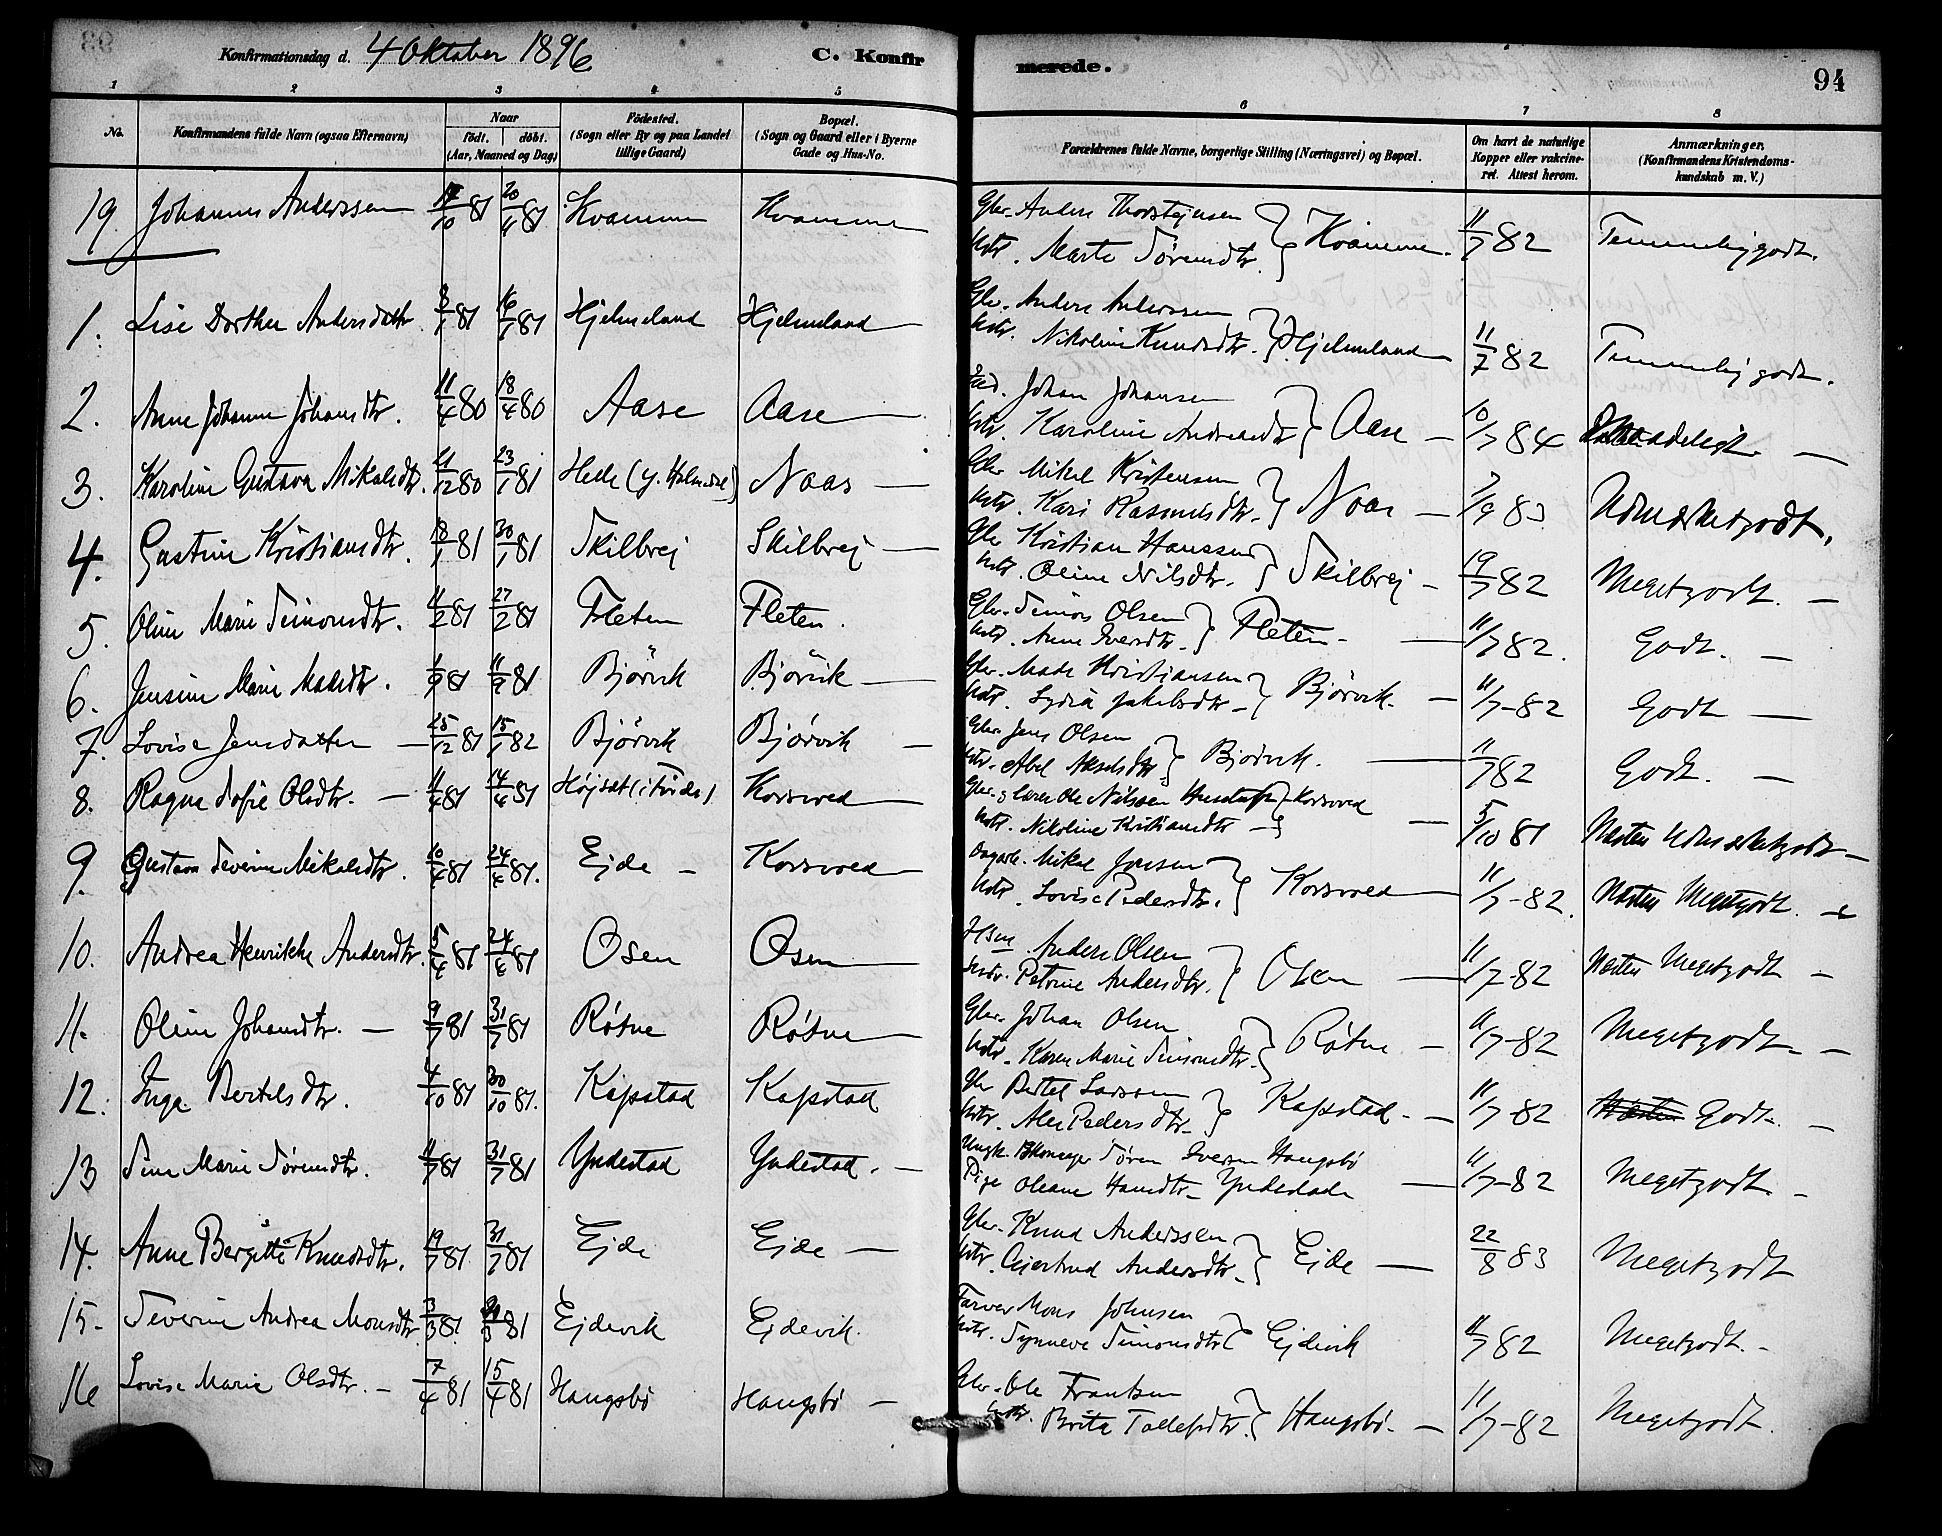 Konfirmationsdag d. 4 Oktober 1896 C. Konfirmerede. 94
1 2 3 4 5 6 7 8
No. Konfirmandens fulde Navn (ogsaa Efternavn) Naar født. døbt. (Aar, Maaned og Dag) Fødested. (Sogn eller By og paa Landet tillige Gaard) Bopæl. (Sogn og Gaard eller i Byerne Gade og Hus-No. Forældrenes fulde Navne, borgerlige Stilling (Næringsvei) og Bopæl. Om havt de naturlige Kopper eller vakcineret. Attest herom. Anmærkninger. (Konfirmandens Kristendomskundskab m. V.)
19. Johannes Anderssen 10 81 20/11 81 Kvamme Kvamme Gbr. Anders Thorstejnsen Kstr. Marte Sørensdtr. } Kvamme. 11/7 82 Temmelig godt.
1. Lise Dorthea Andersdatter 3/1 81 16/1 81 Hjelmeland Hjelmeland Gbr. Anders Anderssen Kstr. Nikoline Knudsdtr. } Hjelmeland 11/7 82 Temmelig godt.
2. Anne Johanne Johansdtr. 11/4 80 18/4 80 Aase Aase Ind. Johan Johansen Kstr. Karoline Andreasdtr } Aase 10/7 84
3. Karoline Gustava Mikalsdtr. 21/12 80 23/1 81 Hede (y. Holmedal) Naas Gbr Mikal Kristensen Kstr. Kari Rasmusdtr. } Naas 7/9 83 Udmærketgodt.
4. Gustine Kristiansdtr. 18/1 81 30/1 81 Skilbrej Skilbrej Gbr Kristian Hanssen Kstr. Oline Nilsdtr. } Skilbrej 19/7 82 Megetgodt.
5. Oline Marie Simonsdtr. 11/2 81 27/2 81 Fleten Fleten. Gbr. Simon Olsen Kstr. Anne Iversdtr. } Fleten 11/7 82. Godt.
6. Jensine Marie Madsdtr. 1/9 81 11/9 81 Bjørvik Bjørvik Gbr. Mads Kristiansen Kstr. Lydia Jakobsdtr } Bjørvik. 11/7-82 Godt
7. Lovise Jensdatter 25/12 81 15/1 82 Bjørvik Bjørvik Gbr. Jens Olsen Kstr. Abel Akselsdtr. } Bjørvik. 11/7 82 Godt.
8. Ragna Sofie Olsdtr. 11/4 81 14/4 81 Højset (i Førde) Korsvoed Gbr. g lærer Ole Nilssen Korsvoed Kstr. Nikoline Kristiansdtr 5/10 81 Næsten Udmærketgodt
9. Gustava Severine Mikalsdtr. 10/4 81 24/4 81. Ejde Korsvoed Mikal Jonsen Kstr. Lovise Pedersdtr. } Korsvoed 11/7-82. Næsten Megetgodt.
10. Andrea Henrikke Andersdtr. 5/4 81 24/4 81 Osen Osen Hsm Anders Olsen Petrine Andersdtr. } Osen 11/7-82 Næsten Megetgodt
11. Oline Johansdtr. 9/7 81 31/7 81 Røtne Røtne Gbr. Johan Olsen Kstr. Karen Marie Simonsdtr. } Røtne 11/7-82 Megetgodt.
12. Inga Bertelsdtr. 4/10 81 30/10 81. Kapstad Kapstad Gbr Bertel Larssen Kstr. Ales Pedersdtr. } Kapstad. 11/7-82 Godt.
13 Sina Marie Sørensdtr. 11/7 81 31/7 81 Yndestad Yndestad. Ungk. Søren Iversen Haugsbø Pige Oleane Hansdtr. Yndestad 11/7-82 Megetgodt.
14. Anne Bergitte Knudsdtr. 19/7 81 31/7 81 Ejde Ejde Gbr. Knud Anderssen Kstr. Gjertrud Andersdtr. } Ejde 22/8 83 Megetgodt
15. Severine Andrea Monsdtr 3/3 81 3 81 Ejdevik Ejdevik. Farver Mons Johnsen Kstr. Synneve Simonsdtr } Ejdevik 11/7 82 Megetgodt.
16 Lovise Marie Olsdtr. 7/4 81 15/4 81 Haugsbø Haugsbø Gbr. Ole Frantsen Kstr. Brita Tollefsdtr. } Haugsbø. 11/7-82 Megetgodt.